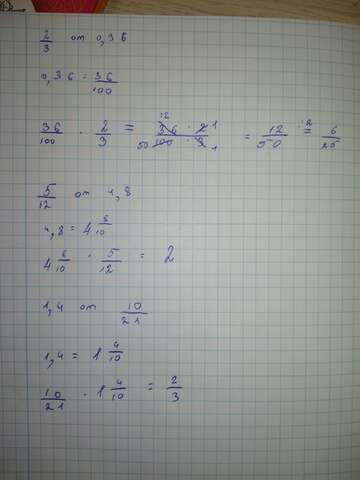 2/3 от 0,36
0,36 = 36/100
36/100 · 2/3 = 12 36 · 2 1 / 50 100 · 3 1 = 12/50 :2 = 6/25
5/12 от 4,8
4,8 = 4 8/10
4 8/10 · 5/12 = 2
1,4 от 10/21
1,4 = 1 4/10
10/21 · 1 4/10 = 2/3